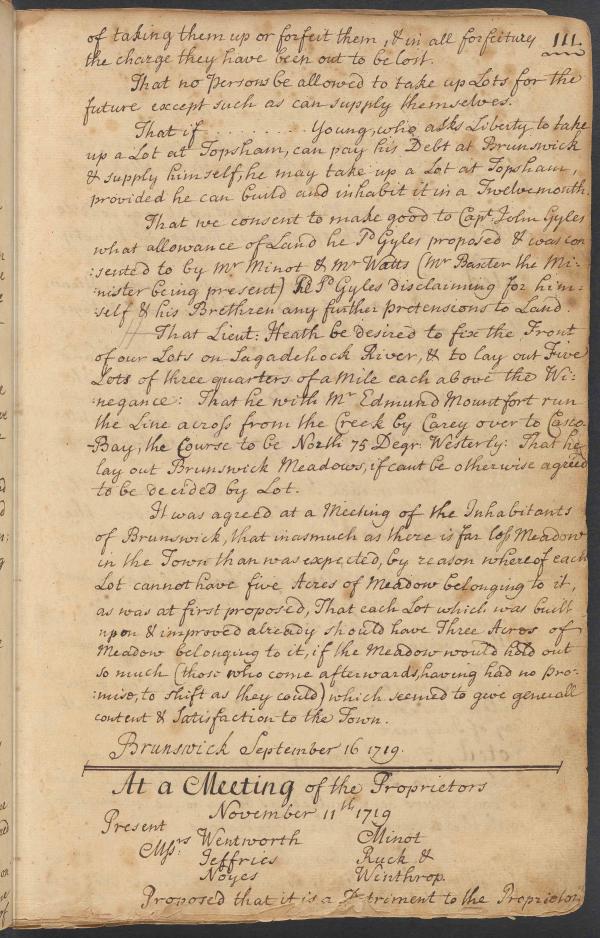 111.
of taking them up or forfeit them, & in all forfeitures
the charge they have been out to be lost.
That no Persons be allowed to take up Lots for the
future except such as can supply themselves.
That if . . . . . . . . Young, who asks Liberty to take
up a Lot at Topsham, can pay his Debt at Brunswick
& supply himself, he may take up a Lot at Topsham,
provided he can build and inhabit it in a Twelvemonth.
That we consent to make good to Capt. John Gyles
what allowance of Land he sd Gyles proposed & was con
:sented to by Mr Minot & Mr Watts (Mr Baxter the Mi:
:nister being present) He sd Gyles disclaiming for him:
:self & his Brethren any further pretensions to Land.
// That Lieut: Heath be desired to fix the Front
of our Lots on Sagadehock River, & to lay out Five
Lots of three quarters of a Mile each above the Wi:
:negance: That he with Mr Edmund Mountfort run
the Line across from the Creek by Carey over to Casco
-Bay, the Course to be North 75 Degr. Westerly: That he
lay out Brunswick Meadows, if cant be otherwise agreed
to be decided by Lot.
It was agreed at a Meeting of the Inhabitants
of Brunswick, that inasmuch as there is far less Meadow
in the Town than was expected, by reason whereof each
Lot cannot have five Acres of Meadow belonging to it,
as was at first proposed, That each Lot which was built
upon & improved already should have Three Acres of
Meadow belonging to it, if the Meadow would hold out
so much (those who come afterwards, having had no pro:
:mise, to shift as they could) which seemed to give generall
content & Satisfaction to the Town.
Brunswick September 16 1719.
At a Meeting of the Proprietors
November 11th 1719
Present
Messrs Wentworth Minot
Jeffries Ruck &
Noyes Winthrop
Proposed that it is a Detriment to the Proprietors